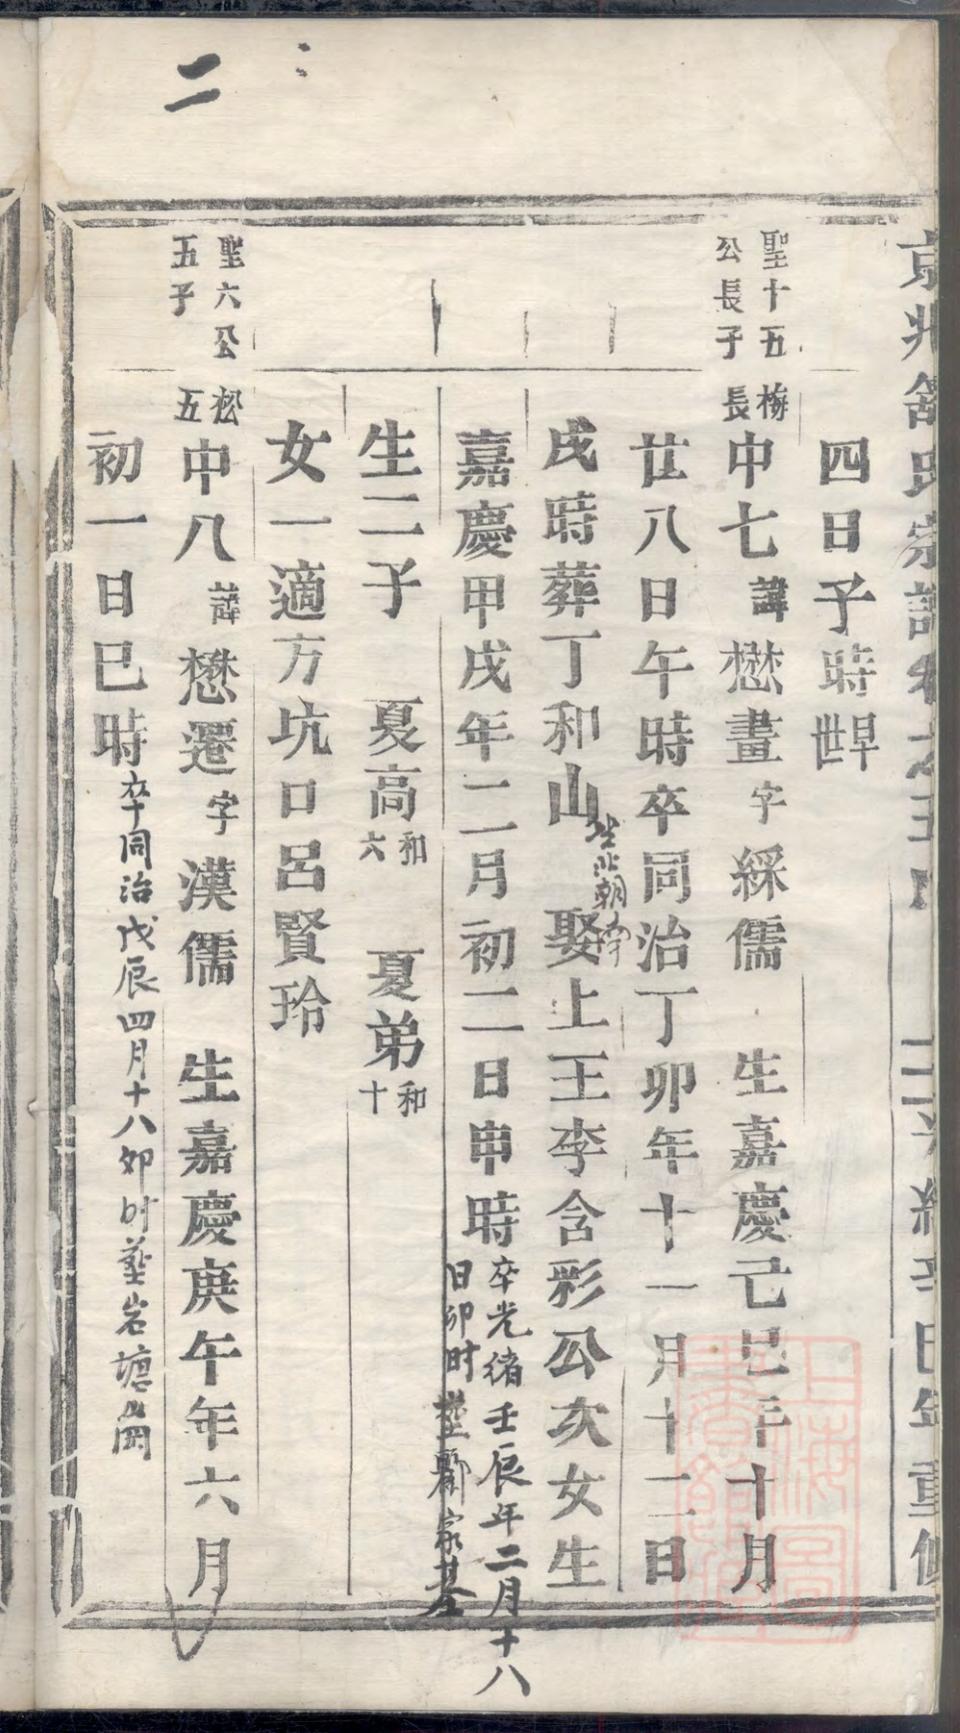 二
京兆舒氏宗譜卷之五 光緒辛巳年重修
四日子時早世
聖十五公長子
梅長中七諱懋畫字綵儒 生嘉慶己巳年十月
廿八日午時卒同治丁卯年十一月十二日
戌時葬丁和山坐北朝南 娶上王李含彩公次女生
嘉慶甲戌年二月初二日申時卒光緒壬辰年二月十八日卯时葬鄭家基
生二子 夏高和六 夏弟和十
女一適方坑口呂賢玲
聖六公五子
松五中八諱懋遷字漢儒 生嘉慶庚午年六月
初一日巳時卒同治戊辰四月十八卯时葬岩塘崗
上海圖書館藏